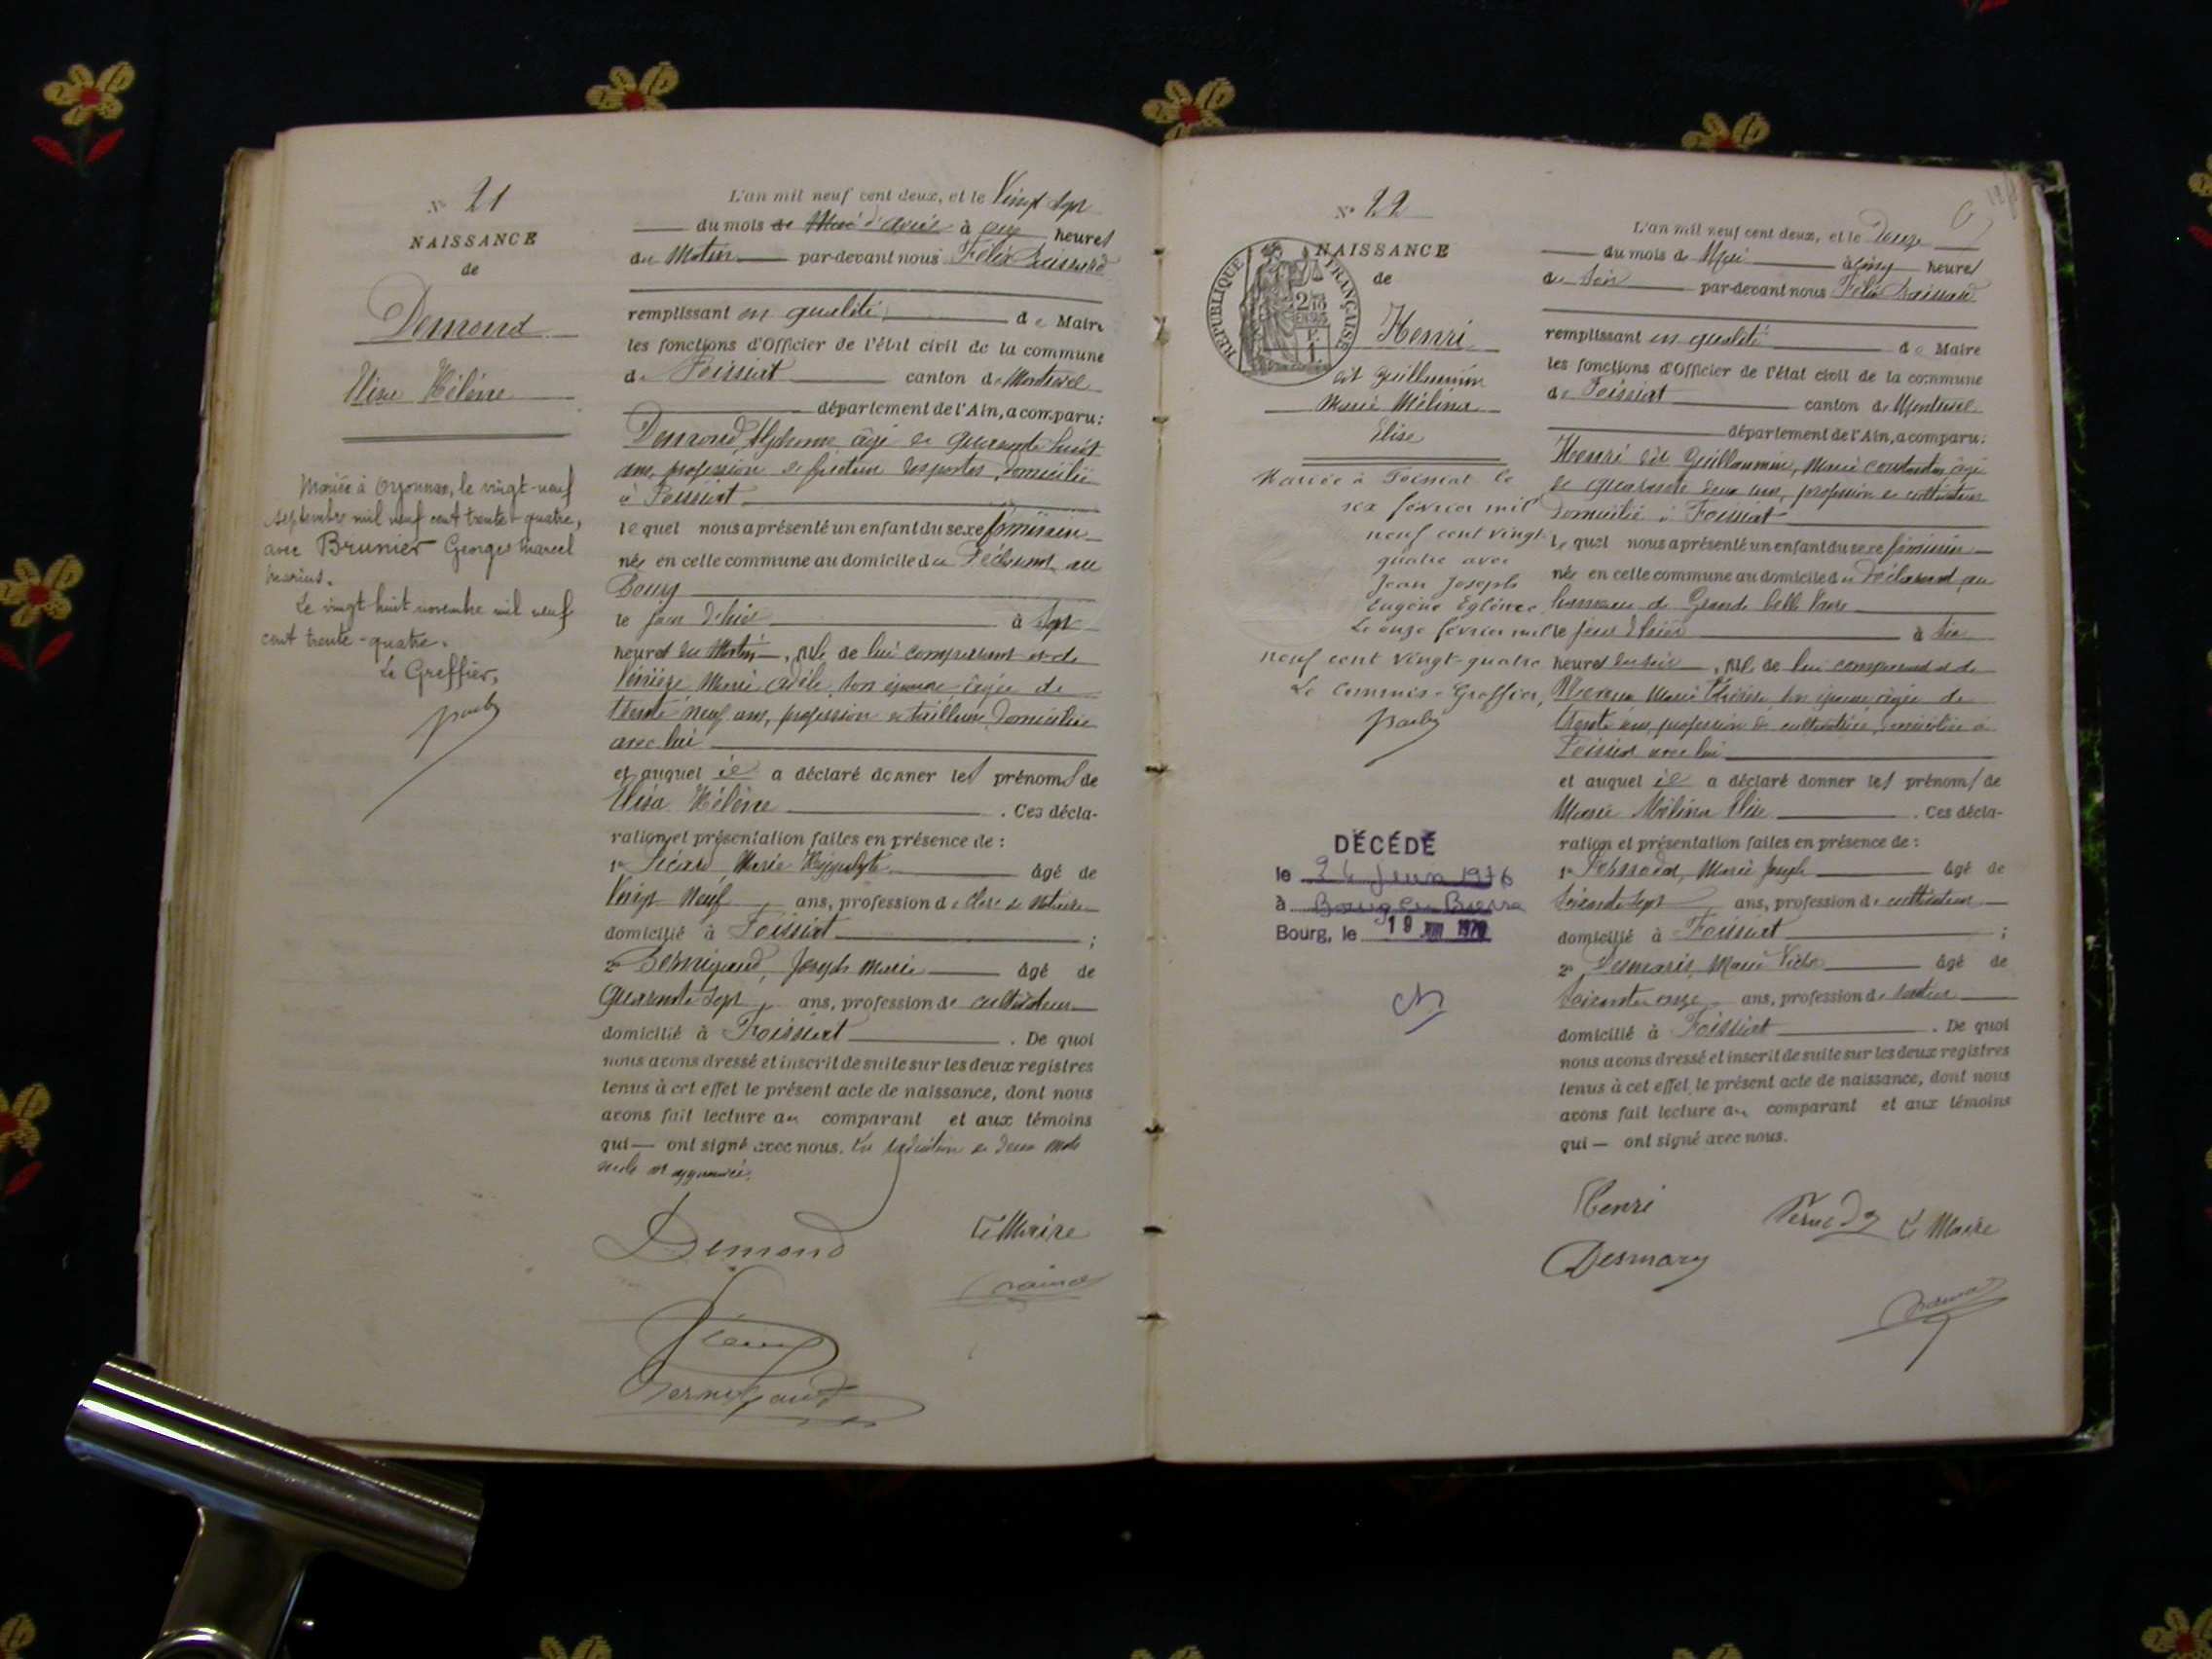 N° 21
NAISSANCE
de
Demond
Elisa Hélène
Mariée à Oyonnax, le vingt-neuf
septembre mil neuf cent trente-quatre,
avec Brunier Georges Marcel
Marius.
Le vingt huit novembre mil neuf
cent trente-quatre.
Le Greffier,
L'an mil neuf cent deux, et le Vingt Sept
du mois de Mai d'avril à heures
du Matin par-devant nous Félix
remplissant en qualité de Maire
les fonctions d'Officier de l'état civil de la commune
de Foissiat canton de Montrevel
département de l'Ain, a comparu :
Demond, Alphonse âgé de quarante huit
ans, profession de facteur des postes, domicilié
à Foissiat
lequel nous a présenté un enfant du sexe féminin
née en cette commune au domicile du Déclarant, au
Bourg
le jour d'hier à Sept
heures du Matin, née de lui comparant et de
Marie Adèle, son épouse, âgée de
trente neuf ans, profession de tailleuse, domiciliée
avec lui
et auquel il a déclaré donner les prénoms de
Elisa Hélène . Ces décla-
ration et présentation faites en présence de :
1° Marie Hippolyte âgé de
Vingt Neuf ans, profession de Clerc de Notaire
domicilié à Foissiat ;
2° Bernigaud, Joseph Marie âgé de
Quarante Sept ans, profession de cultivateur
domicilié à Foissiat . De quoi
nous avons dressé et inscrit de suite sur les deux registres
tenus à cet effet le présent acte de naissance, dont nous
avons fait lecture au comparant et aux témoins
qui — ont signé avec nous. La radiation de deux mots
nuls est approuvée.
Demond
Le Maire
Bernigaud
N° 22
NAISSANCE
de
REPUBLIQUE FRANÇAISE
Henri
dit Guillaumin
Marie Mélina
Elise
Mariée à Foissiat le
six février mil
neuf cent vingt
quatre avec
Jean Joseph
Eugène
Le onze février mil
neuf cent vingt-quatre
Le Commis-Greffier,
DÉCÉDÉ
le 24 Juin 1976
à Bourg en Bresse
Bourg, le 19
L'an mil neuf cent deux, et le Douze
du mois de Mai à cinq heures
du Soir par-devant nous Félix
remplissant en qualité de Maire
les fonctions d'Officier de l'état civil de la commune
de Foissiat canton de Montrevel
département de l'Ain, a comparu :
Henri dit Guillaumin, Marie Constantin âgé
de quarante deux ans, profession de cultivateur
domicilié à Foissiat
lequel nous a présenté un enfant du sexe féminin
née en cette commune au domicile du Déclarant, au
hameau de Grande
le jour d'hier à six
heures du soir, née de lui comparant et de
Marie Thérèse son épouse, âgée de
trente ans, profession de cultivatrice, domiciliée à
Foissiat avec lui
et auquel il a déclaré donner les prénoms de
Marie Mélina Elise . Ces décla-
ration et présentation faites en présence de :
1° Marie Joseph âgé de
Soixante Sept ans, profession de cultivateur
domicilié à Foissiat ;
2° Desmaris, Marie âgé de
Soixante onze ans, profession de
domicilié à Foissiat . De quoi
nous avons dressé et inscrit de suite sur les deux registres
tenus à cet effet, le présent acte de naissance, dont nous
avons fait lecture au comparant et aux témoins
qui — ont signé avec nous.
Henri
Le Maire
Desmary